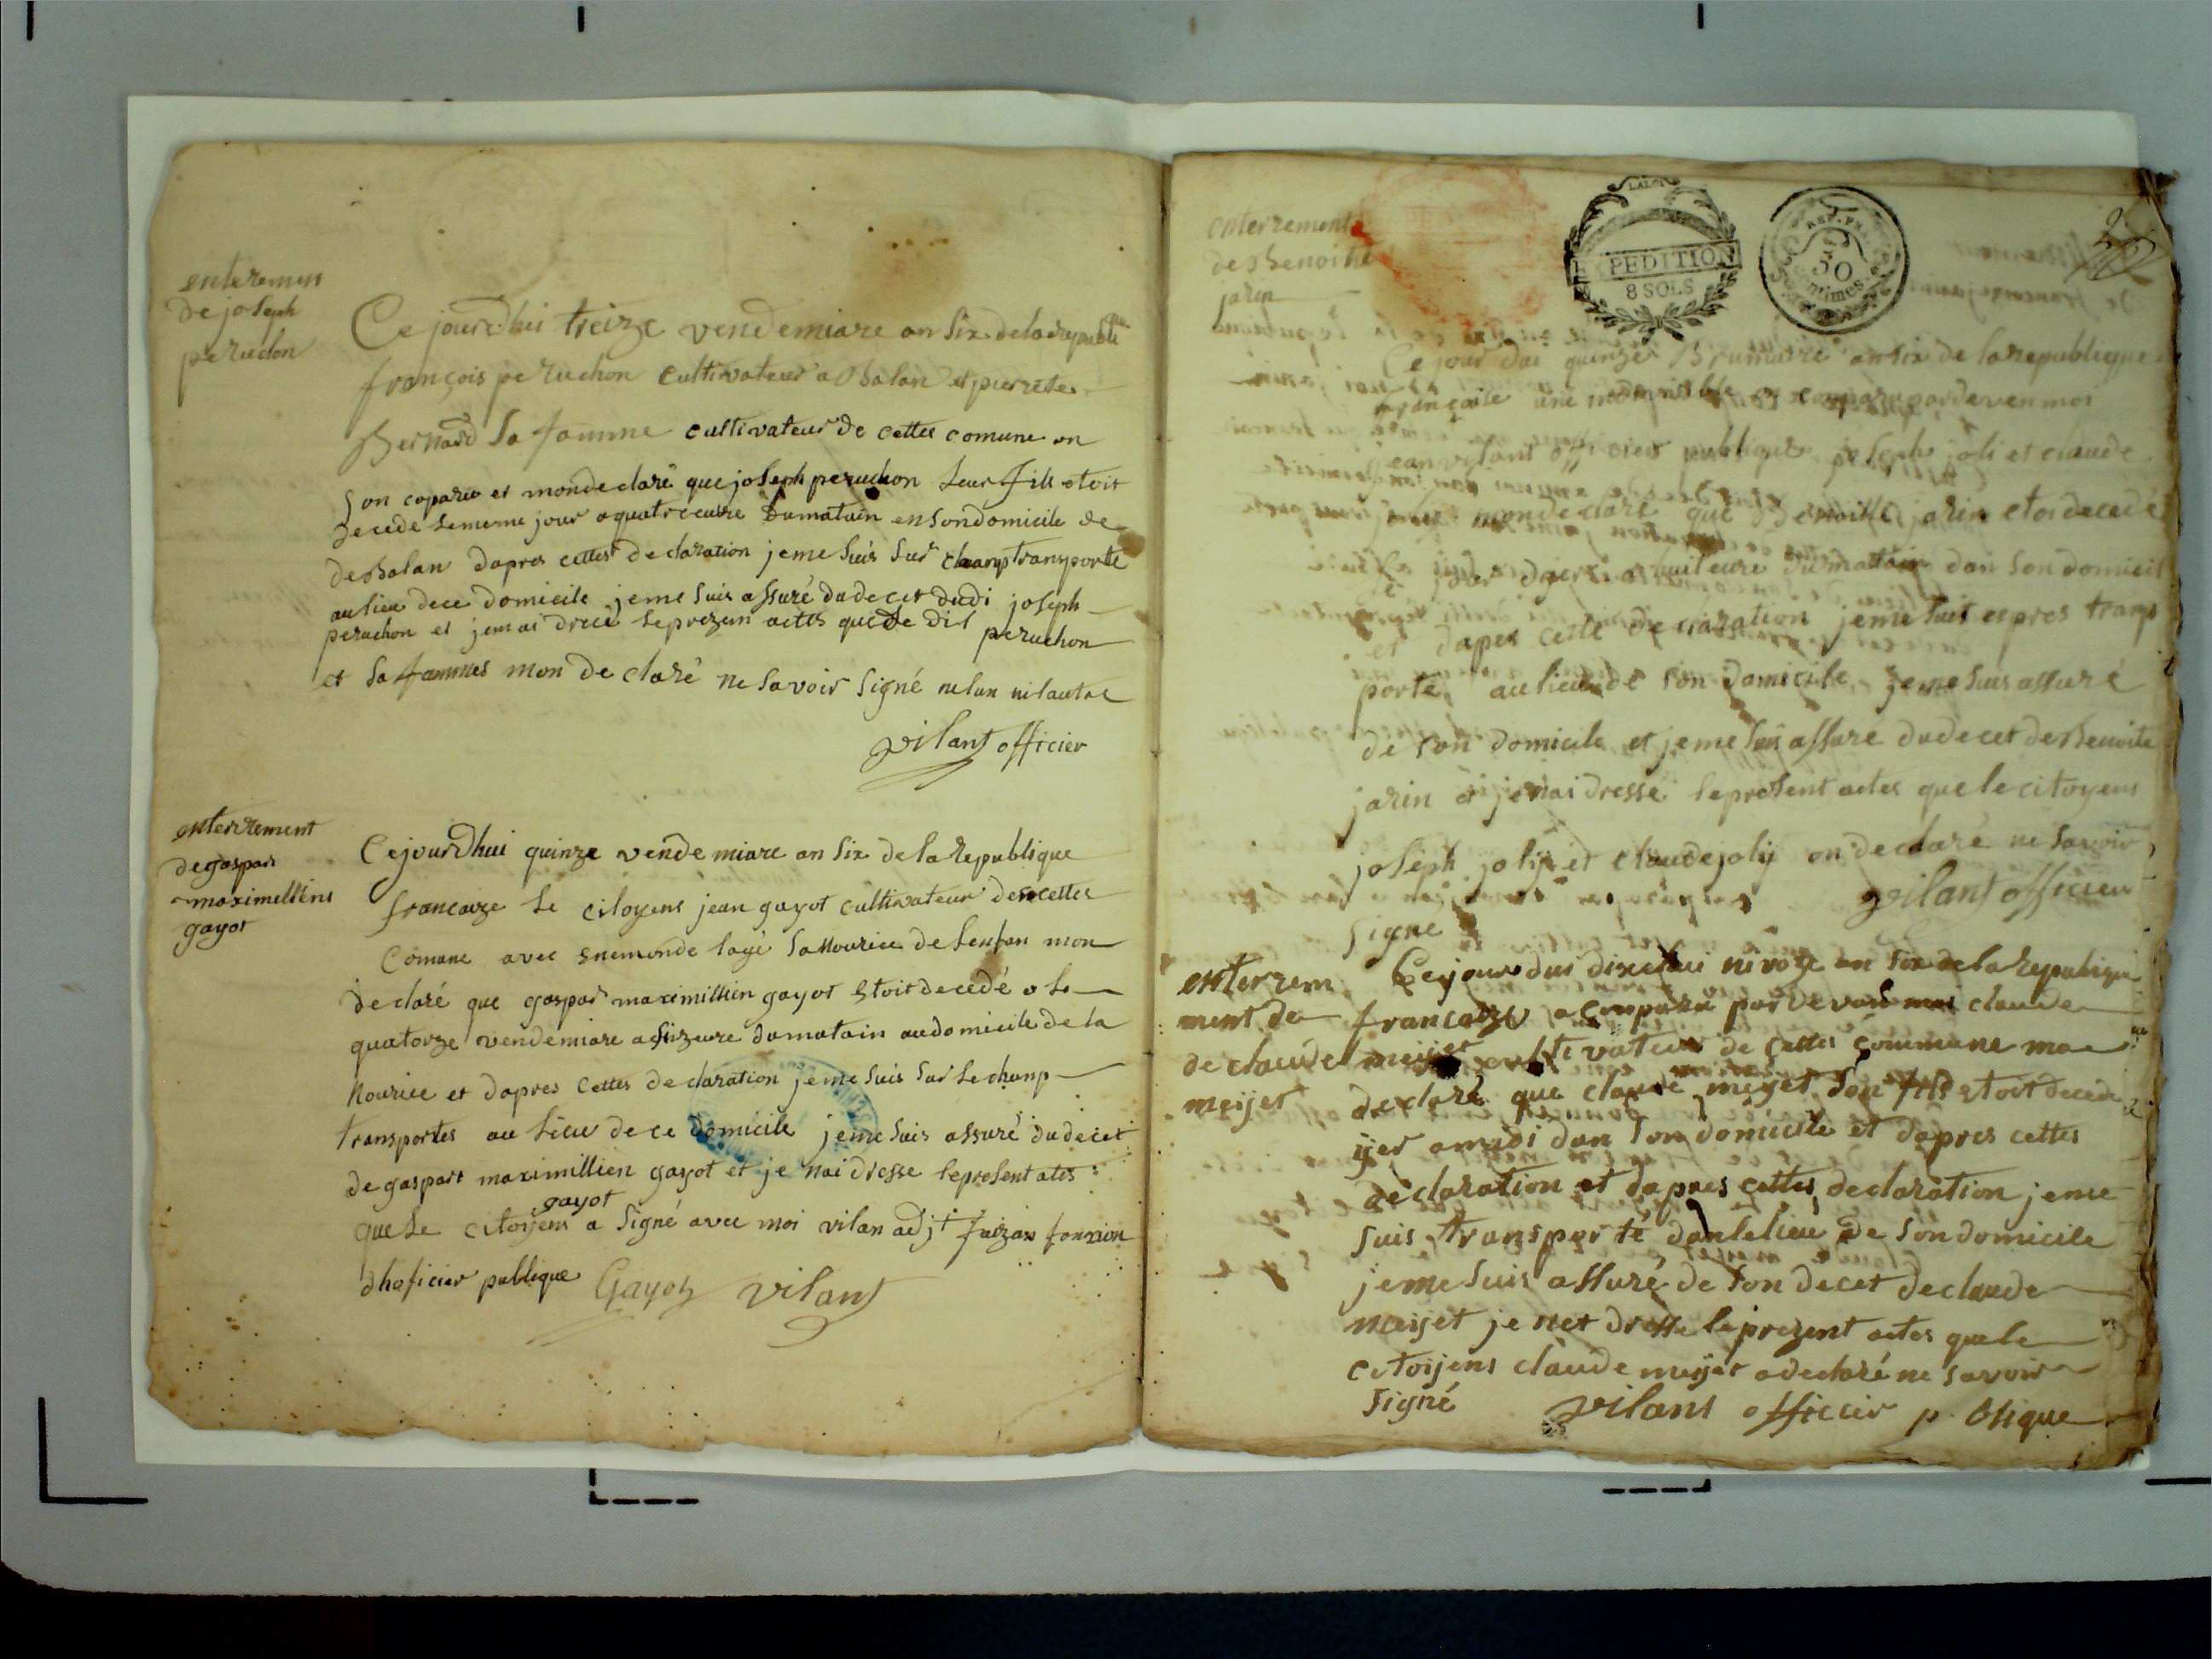 enteremens
de joseph
peruchon
Ce jourdhui treize vendemiare an six de la republi
que
françois peruchon cultivateur a Balan et pierrete
Bernard sa famme cultivateur de cettes comune on
son coparu et mon declaré que joseph peruchon leur fils etoit
decede le meme jour a quatre eure du matain en son domicile de
de Balan dapres cettes declaration je me suis sur champ transporte
au lieu de ce domicile je me suis assuré du decet dudi joseph
peruchon et jemai drecé le prezen actes que le dit peruchon
et sa fammes mon declaré ne savoir signé ne lun ni lautre
vilant officier
enterrement
de gaspar
maximelliens
gayot
Ce jourdhui quinze vendemiare an six de la republique
francaize le citoyens jean gayot cultivateur de cettes
Comune avec enemonde lagé sa nourice de lenfan mon
declaré que gaspar maximillien gayot etoit decedé le
quatorze vendemiare a sizeure du matain au domicile de la
nourice et dapres cettes declaration je me suis sur le chanp
transportes au lieu de ce domicile je me suis assuré du decet
de gaspart maximillien gayot et je nai dresse le present actes
gayot
que le citoijens a signé avec moi vilan adjt faizan fonxion
dhoficier publique Gayot vilant
enterrement
de Benoite
jarin
LA LOI
EXPEDITION
8 SOLS
REP. FRA
50
centimes
2
Ce jour dui quinze Brumaire an six de la republique
françaile une indivisible a comparu pardeven moi
jean vilant officier publique joseph joli et claude
mon declaré que Benoitte jarin etoi decedé
a huit eure du mattain dan son domicil
et dapres cette declaration je me suis expres trans
porté au lieu de son domicile je me suis assuré
de son domicile et je me suis assuré du decet de Benoite
jarin et je nai dressé le present actes que le citoyens
joseph jolij et claude jolij on declaré ne savoir
signé
vilant officier
enterrem
ment de
de claude
meijet
Ce jour dui dixehui nivoze an six de la republique
francaize a conparu pardevan moi claude
meijet cultivateur de cettes commune ma
declaré que claude meijet son fils etoit decede
ijer a midi dan son domicile et dapres cettes
declaration et dapres cettes declaration je me
suis transporté dan le lieu de son domicile
je me suis assuré de son decet de claude
meijet je net dresse le prezent actes que le
citoijens claude meijet a declaré ne savoir
signé
vilant officier p blique